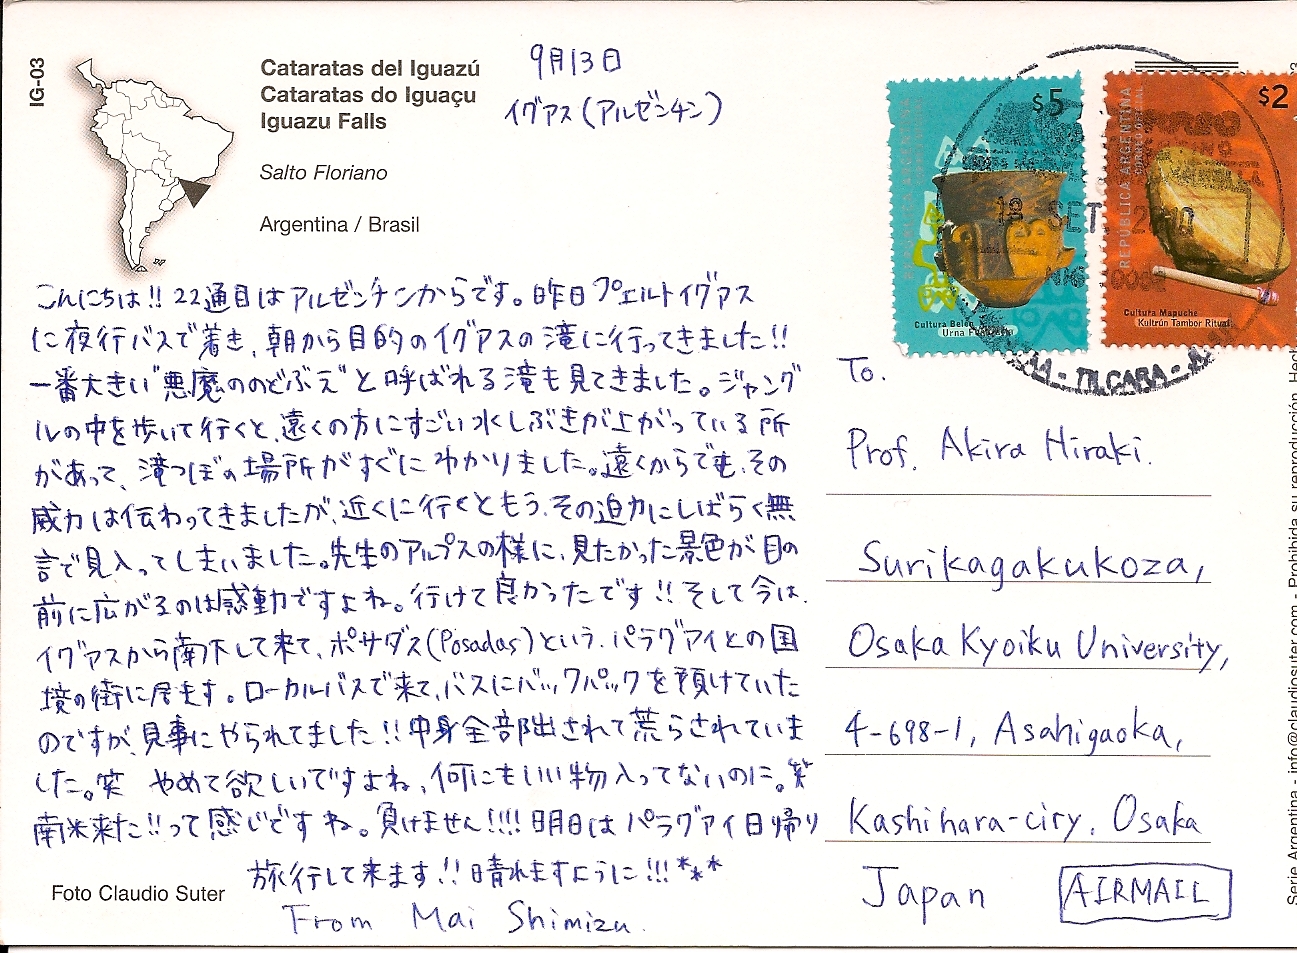 IG-03
Cataratas del Iguazú
Cataratas do Iguaçu
Iguazu Falls
Salto Floriano
Argentina / Brasil
9月13日
イグアス(アルゼンチン)
$5
Cultura Belén
Urna Funeraria
$2
REPUBLICA ARGENTINA
CORREO OFICIAL
Cultura Mapuche
Kultrún Tambor Ritual
18 SET 2010
TILCARA
こんにちは!! 22通目はアルゼンチンからです。昨日プエルトイグアス
に夜行バスで着き、朝から目的のイグアスの滝に行ってきました!!
一番大きい"悪魔ののどぶえ"と呼ばれる滝も見てきました。ジャング
ルの中を歩いて行くと、遠くの方にすごい水しぶきが上がっている所
があって、滝つぼの場所がすぐにわかりました。遠くからでも、その
威力は伝わってきましたが、近くに行くともう、その迫力にしばらく無
言で見入ってしまいました。先生のアルプスの様に、見たかった景色が目の
前に広がるのは感動ですよね。行けて良かったです!! そして今は、
イグアスから南下して来て、ポサダス(Posadas)という、パラグアイとの国
境の街に居ます。ローカルバスで来て、バスにバックパックを預けていた
のですが、見事にやられてました!! 中身全部出されて荒らされていま
した。笑 やめて欲しいですよね、何にもいい物入ってないのに。笑
南米来た!!って感じですね。負けません!!!! 明日はパラグアイ日帰り
旅行して来ます!! 晴れますように!!! ***
From Mai Shimizu.
Foto Claudio Suter
To.
Prof. Akira Hiraki.
Surikagakukoza,
Osaka Kyoiku University,
4-698-1, Asahigaoka,
Kashihara-ciry, Osaka
Japan
AIRMAIL